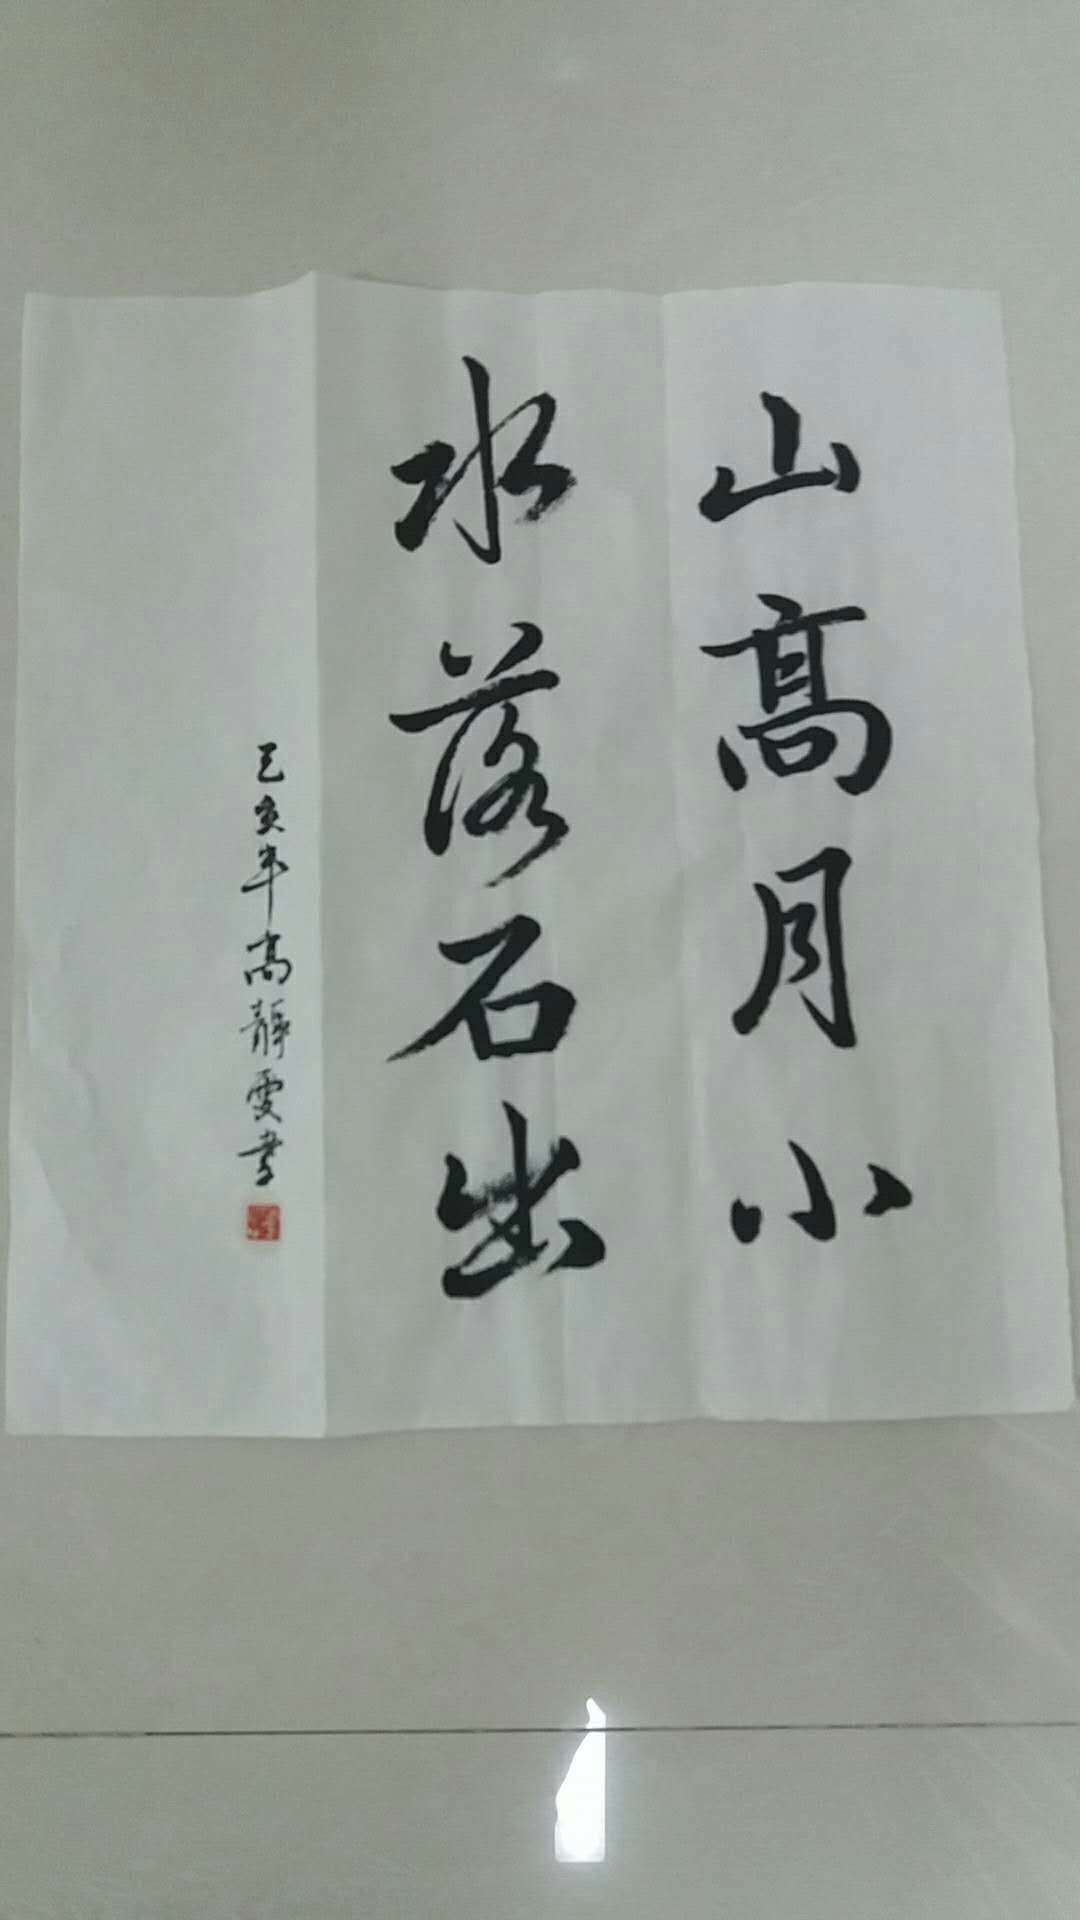 山高月小
水落石出
己亥年高靜雯書